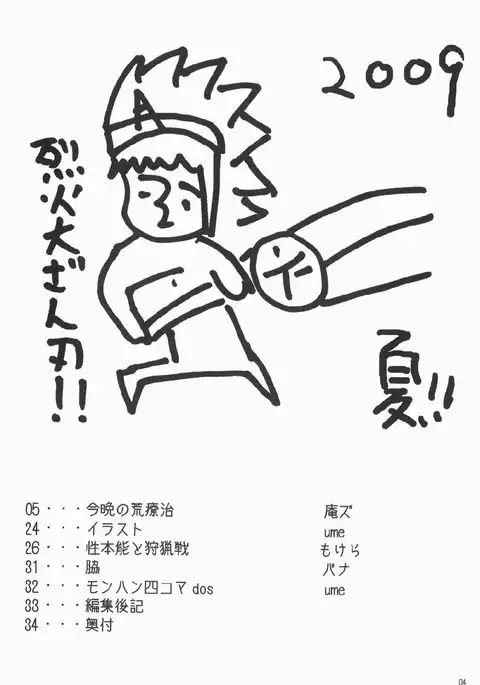 2009
A
烈火大ざん刃!!
イ
夏!!
05・・・今晩の荒療治 庵ズ
24・・・イラスト ume
26・・・性本能と狩猟戦 もけら
31・・・脇 バナ
32・・・モンハン四コマ dos ume
33・・・編集後記
34・・・奥付
04